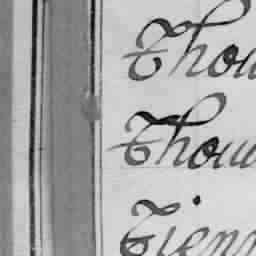 Thou
Thou
Tienn